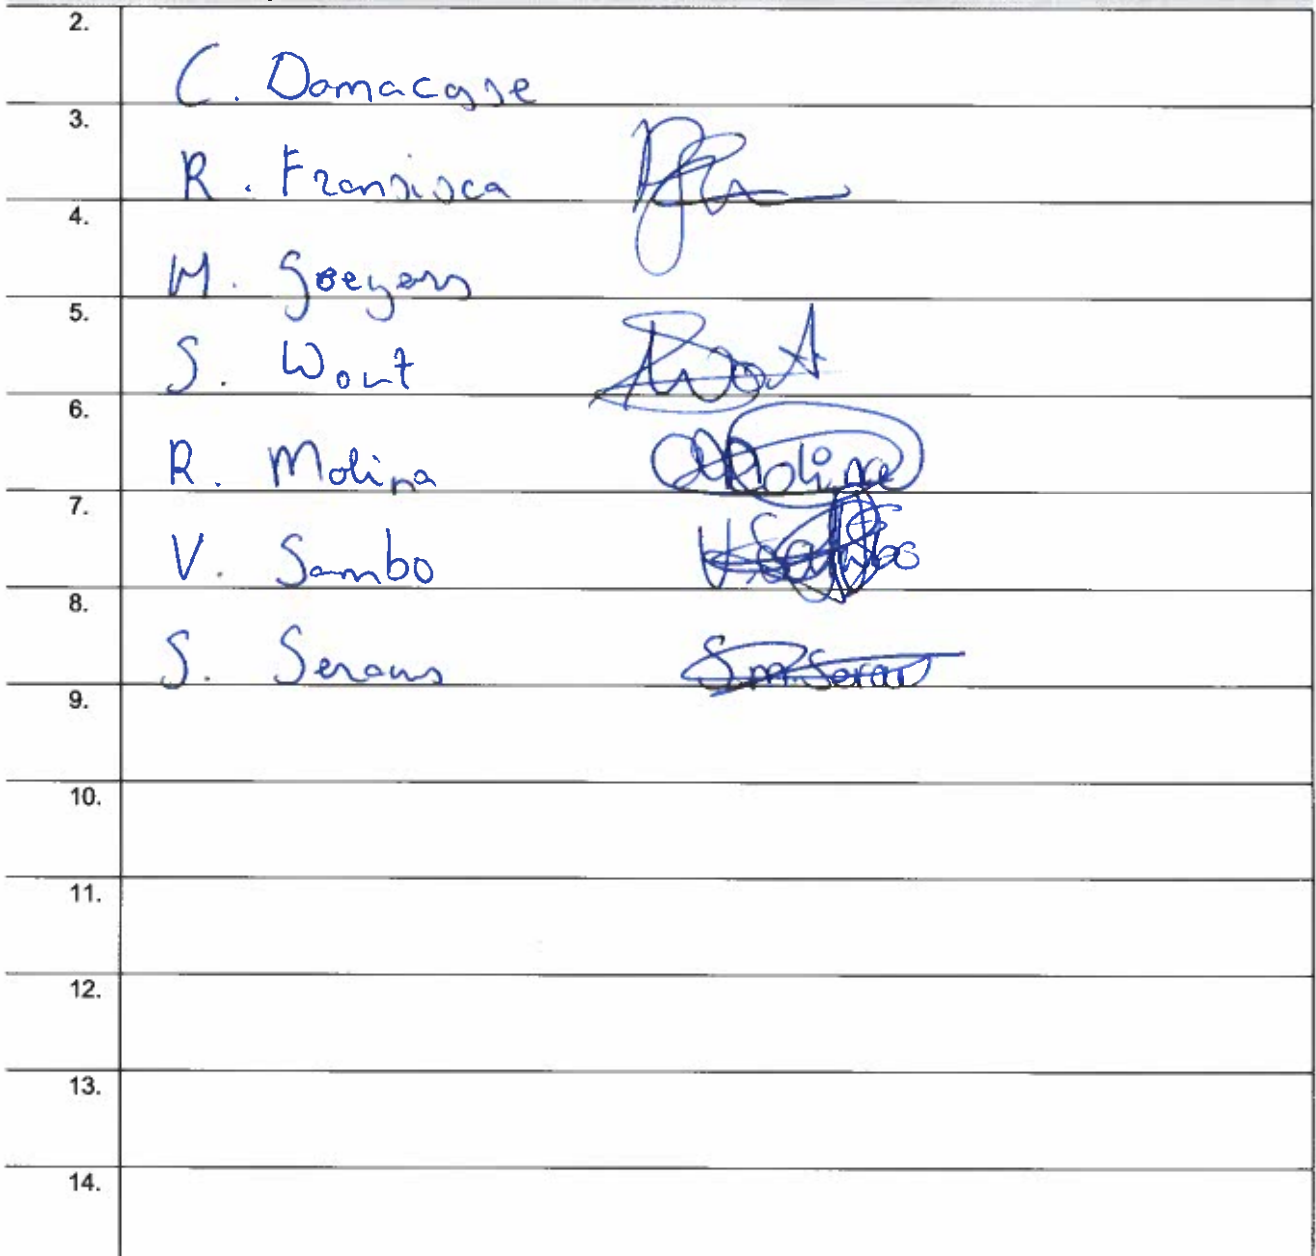 2.
C. Damacase
3.
R. Fransisca
4.
M. Goeyers
5.
S. Wout
6.
R. Molina Molina
7.
V. Sambo
8.
S. Seraus
9.
10.
11.
12.
13.
14.